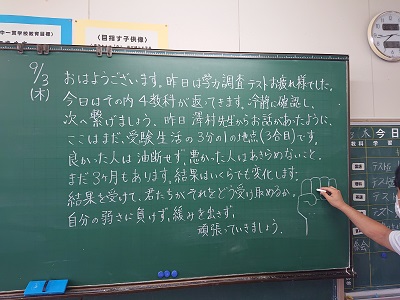 中一貫学校教育目標
〈目指す子供像〉
9/3
(木)
おはようございます。昨日は学力調査テストお疲れ様でした。
今日はその内4教科が返ってきます。冷静に確認し、
次へ繋げましょう。昨日澤村先生からお話があったように、
ここはまだ、受験生活の3分の1の地点(3合目)です。
良かった人は油断せず。悪かった人はあきらめないこと。
まだ3ヶ月もあります。結果はいくらでも変化します。
結果を受けて、君たちがそれをどう受け取めるか。
自分の弱さに負けず、緩みを出さず、
頑張っていきましょう。
木 今日
教科 学